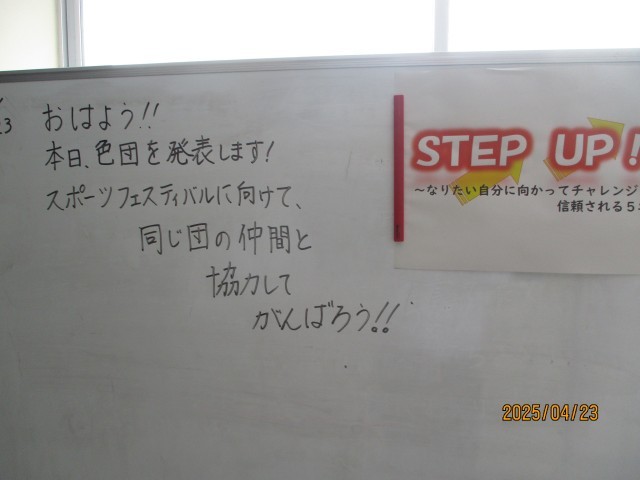 23 おはよう!!
本日、色団を発表します!
スポーツフェスティバルに向けて、
同じ団の仲間と
協力して
がんばろう!!
STEP UP!
~なりたい自分に向かってチャレンジ
信頼される5
2025/04/23